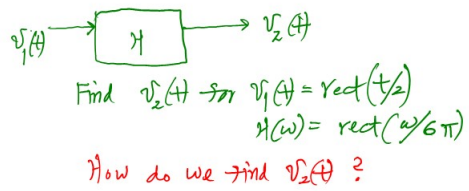 v₁(t) → H → v₂(t)
Find v₂(t) for v₁(t) = rect(t/2)
H(ω) = rect(ω/6π)
How do we find v₂(t) ?